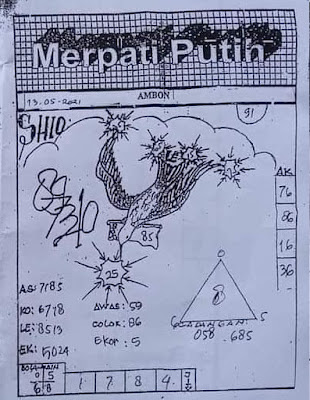 Merpati Putih
AMBON
13-05-2021
91
SHIO:
310
AK
76
86
16
36
85
25
AS: 7185
KO: 6718
LE: 8513
EK: 5024
AWAS: 59
COLOR: 86
EKOR: 5
0
8
6
5
CADANGAN:
058 . 685
0 5
6 8
1 7 8 4